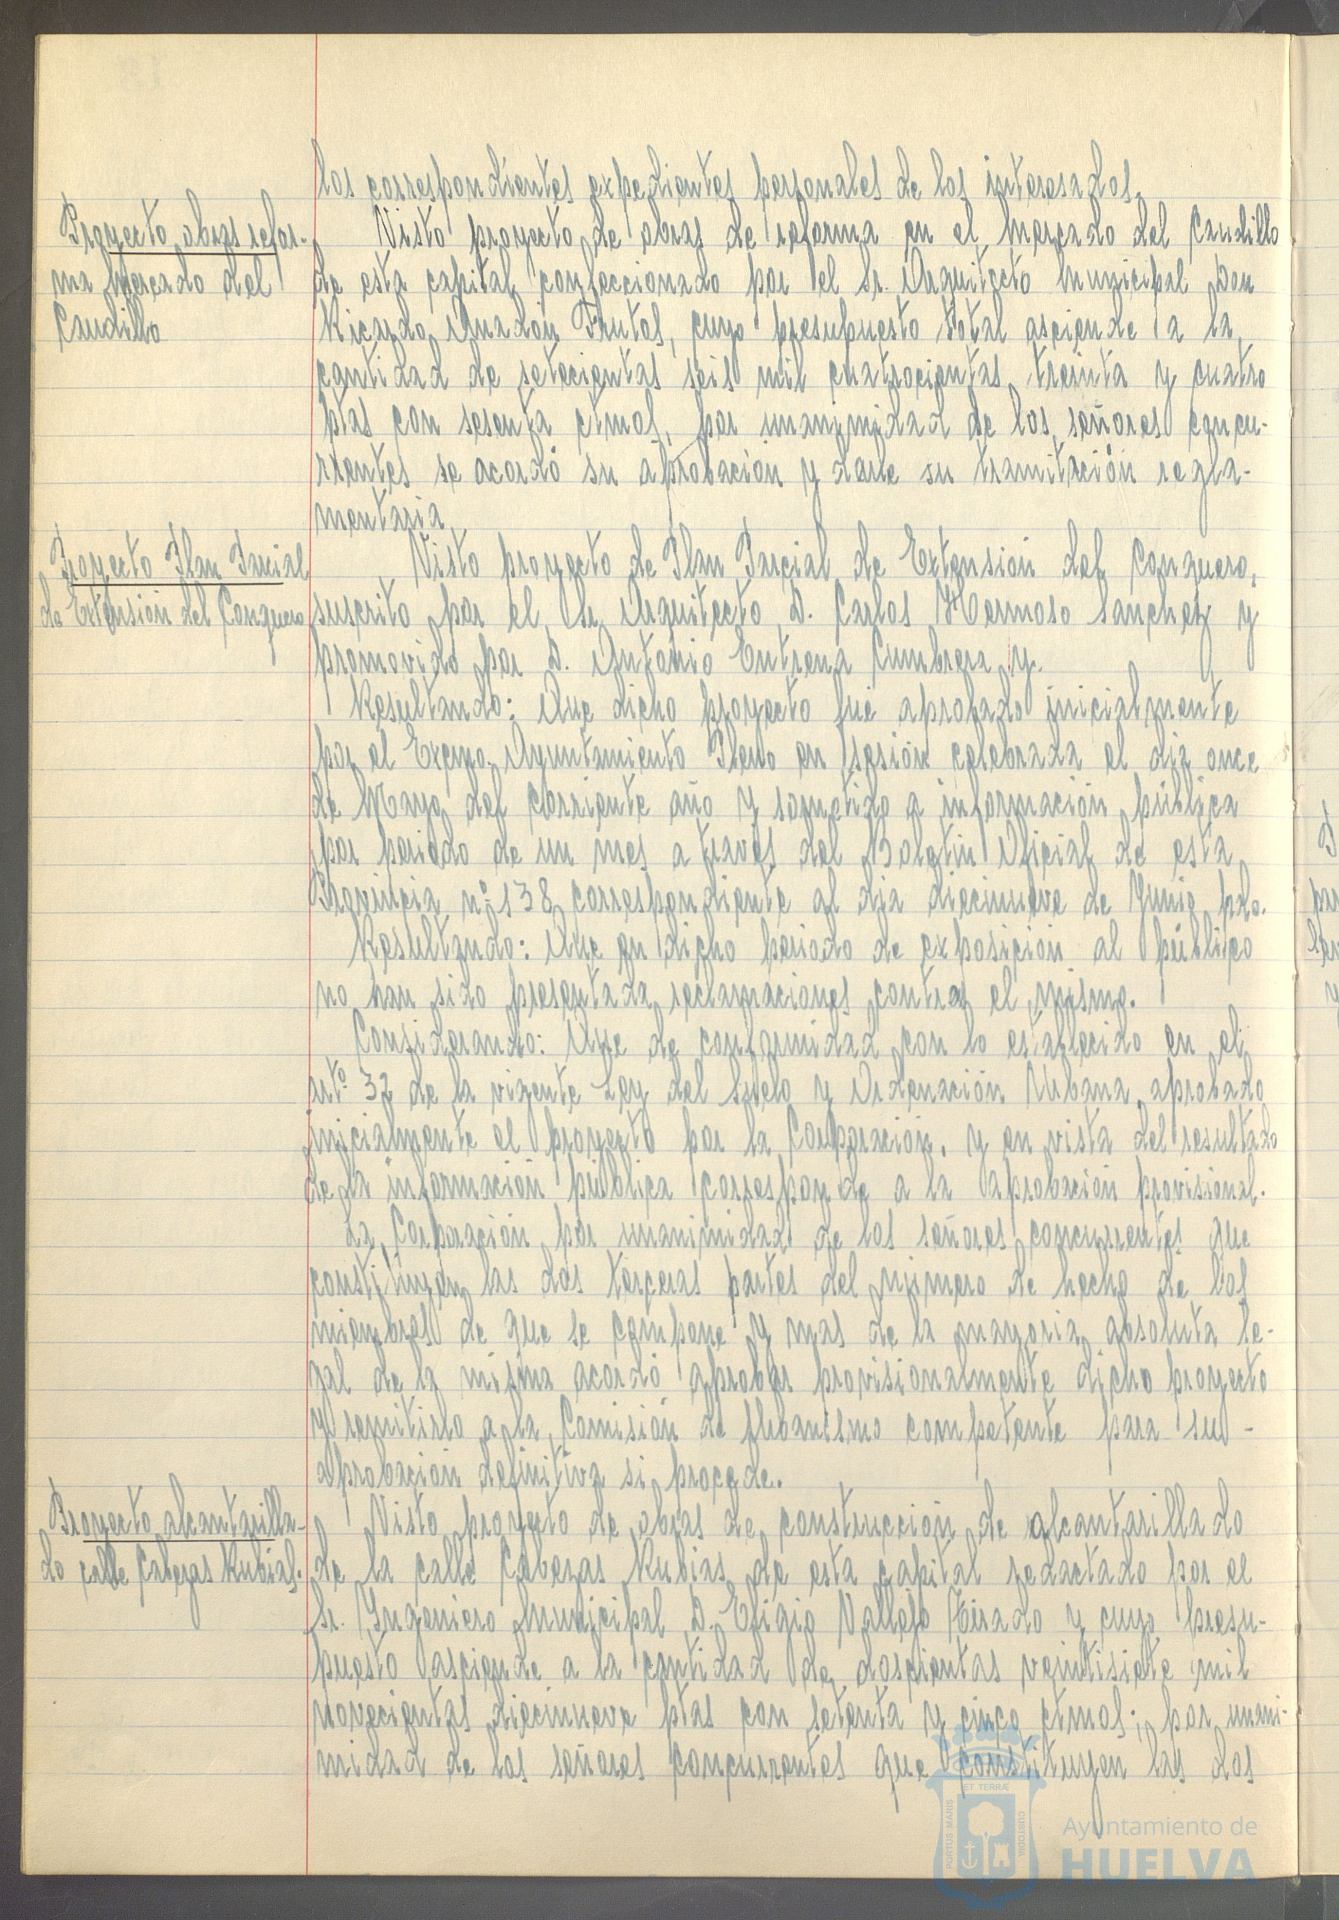 los correspondientes expedientes personales de los interesados.
Proyecto obras refor-
ma Mercado del
Caudillo
Visto proyecto de obras de reforma en el Mercado del Caudillo
de esta capital confeccionado por el Sr. Arquitecto Municipal Don
Ricardo Anadón Frutos, cuyo presupuesto total asciende a la
cantidad de setecientas seis mil cuatrocientas treinta y cuatro
ptas con sesenta ctmos, por unanimidad de los señores concu-
rrentes se acordó su aprobación y darle su tramitación regla-
mentaria
Proyecto Plan Parcial
de Extensión del Conquero
Visto proyecto de Plan Parcial de Extensión del Conquero,
suscrito por el Sr. Arquitecto D. Carlos Hermoso Sanchez y
promovido por D. Antonio Entrena Cumbrera y.
Resultando: Que dicho proyecto fué aprobado inicialmente
por el Excmo. Ayuntamiento Pleno en sesión celebrada el dia once
de Mayo del corriente año y sometido a información pública
por periodo de un mes a través del Boletin Oficial de esta
Provincia nº 138 correspondiente al dia diecinueve de Junio pdo.
Resultando: Que en dicho periodo de exposición al público
no han sido presentada reclamaciones contra el mismo.
Considerando: Que de conformidad con lo establecido en el
artº 32 de la vigente Ley del Suelo y Ordenación Urbana, aprobado
inicialmente el proyecto por la Corporación, y en vista del resultado
de la información pública corresponde a la aprobación provisional.
La Corporación por unanimidad de los señores concurrentes que
constituyen las dos terceras partes del número de hecho de los
miembros de que se compone y mas de la mayoria absoluta le-
gal de la misma acordó aprobar provisionalmente dicho proyecto
y remitirlo a la Comisión de Urbanismo competente para su -
aprobación definitiva si procede.
Proyecto alcantarilla-
do calle Cabezas Rubias.
Visto proyecto de obras de construcción de alcantarillado
de la calle Cabezas Rubias de esta capital redactado por el
Sr. Ingeniero Municipal D. Eligio Vallejo Tirado y cuyo presu-
puesto asciende a la cantidad de doscientas veintisiete mil
novecientas diecinueve ptas con setenta y cinco ctmos; por unani-
midad de los señores concurrentes que constituyen las dos
PORTUS MARIS
ET TERRÆ
CUSTODIA
Ayuntamiento de
HUELVA